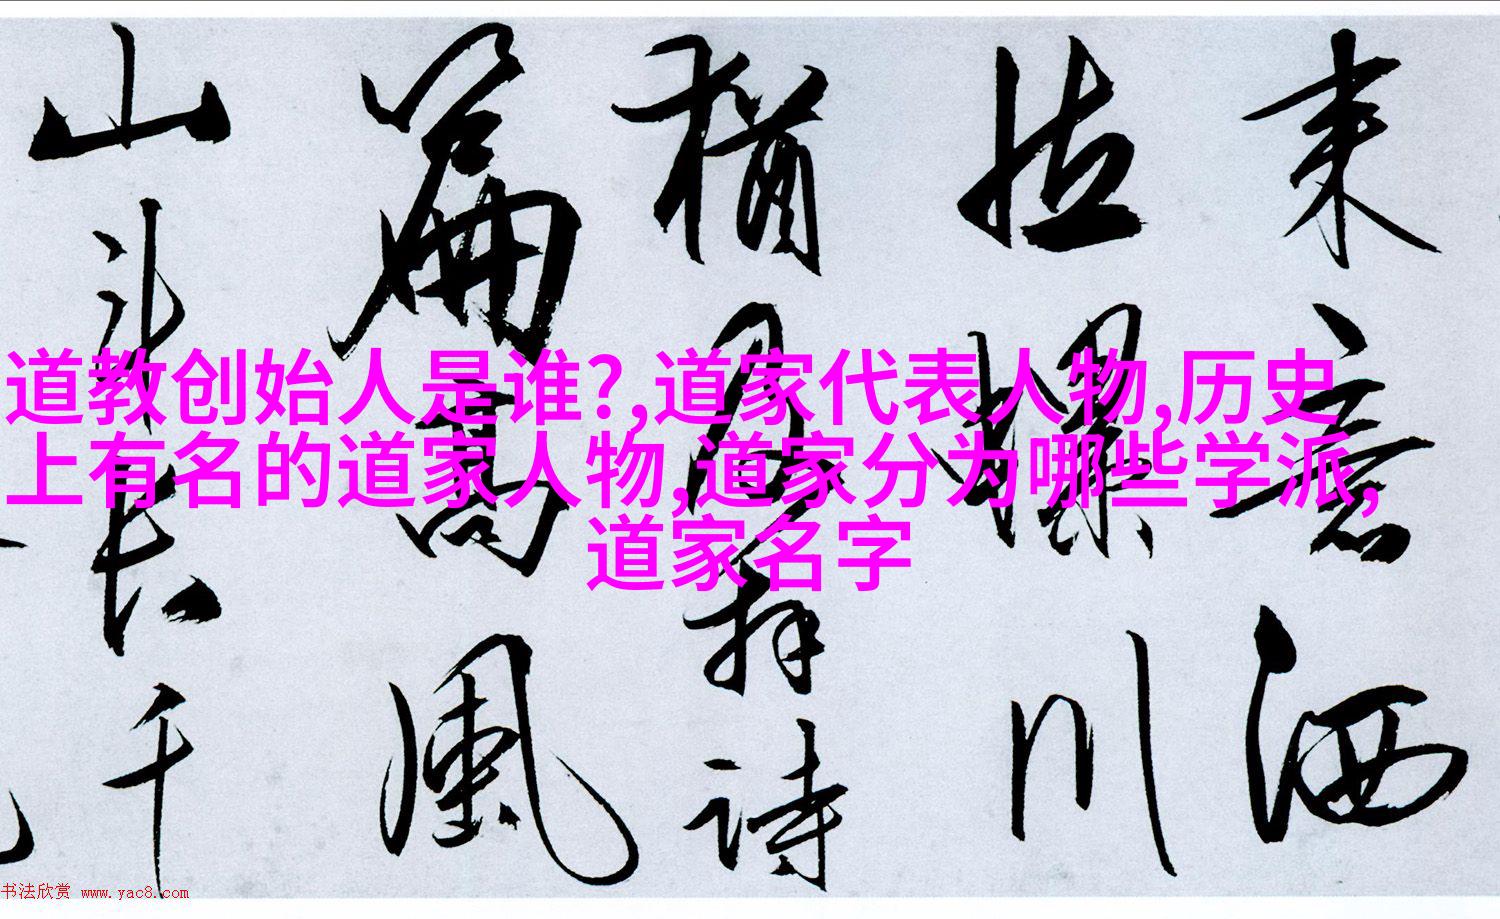 道教创始人是谁?,道家代表人物,历史
上有名的道家人物,道家分为哪些学派,
道家名字
来意洒
川
拜詩
篇高風
山斗长千
书法欣赏 www.yac8.com